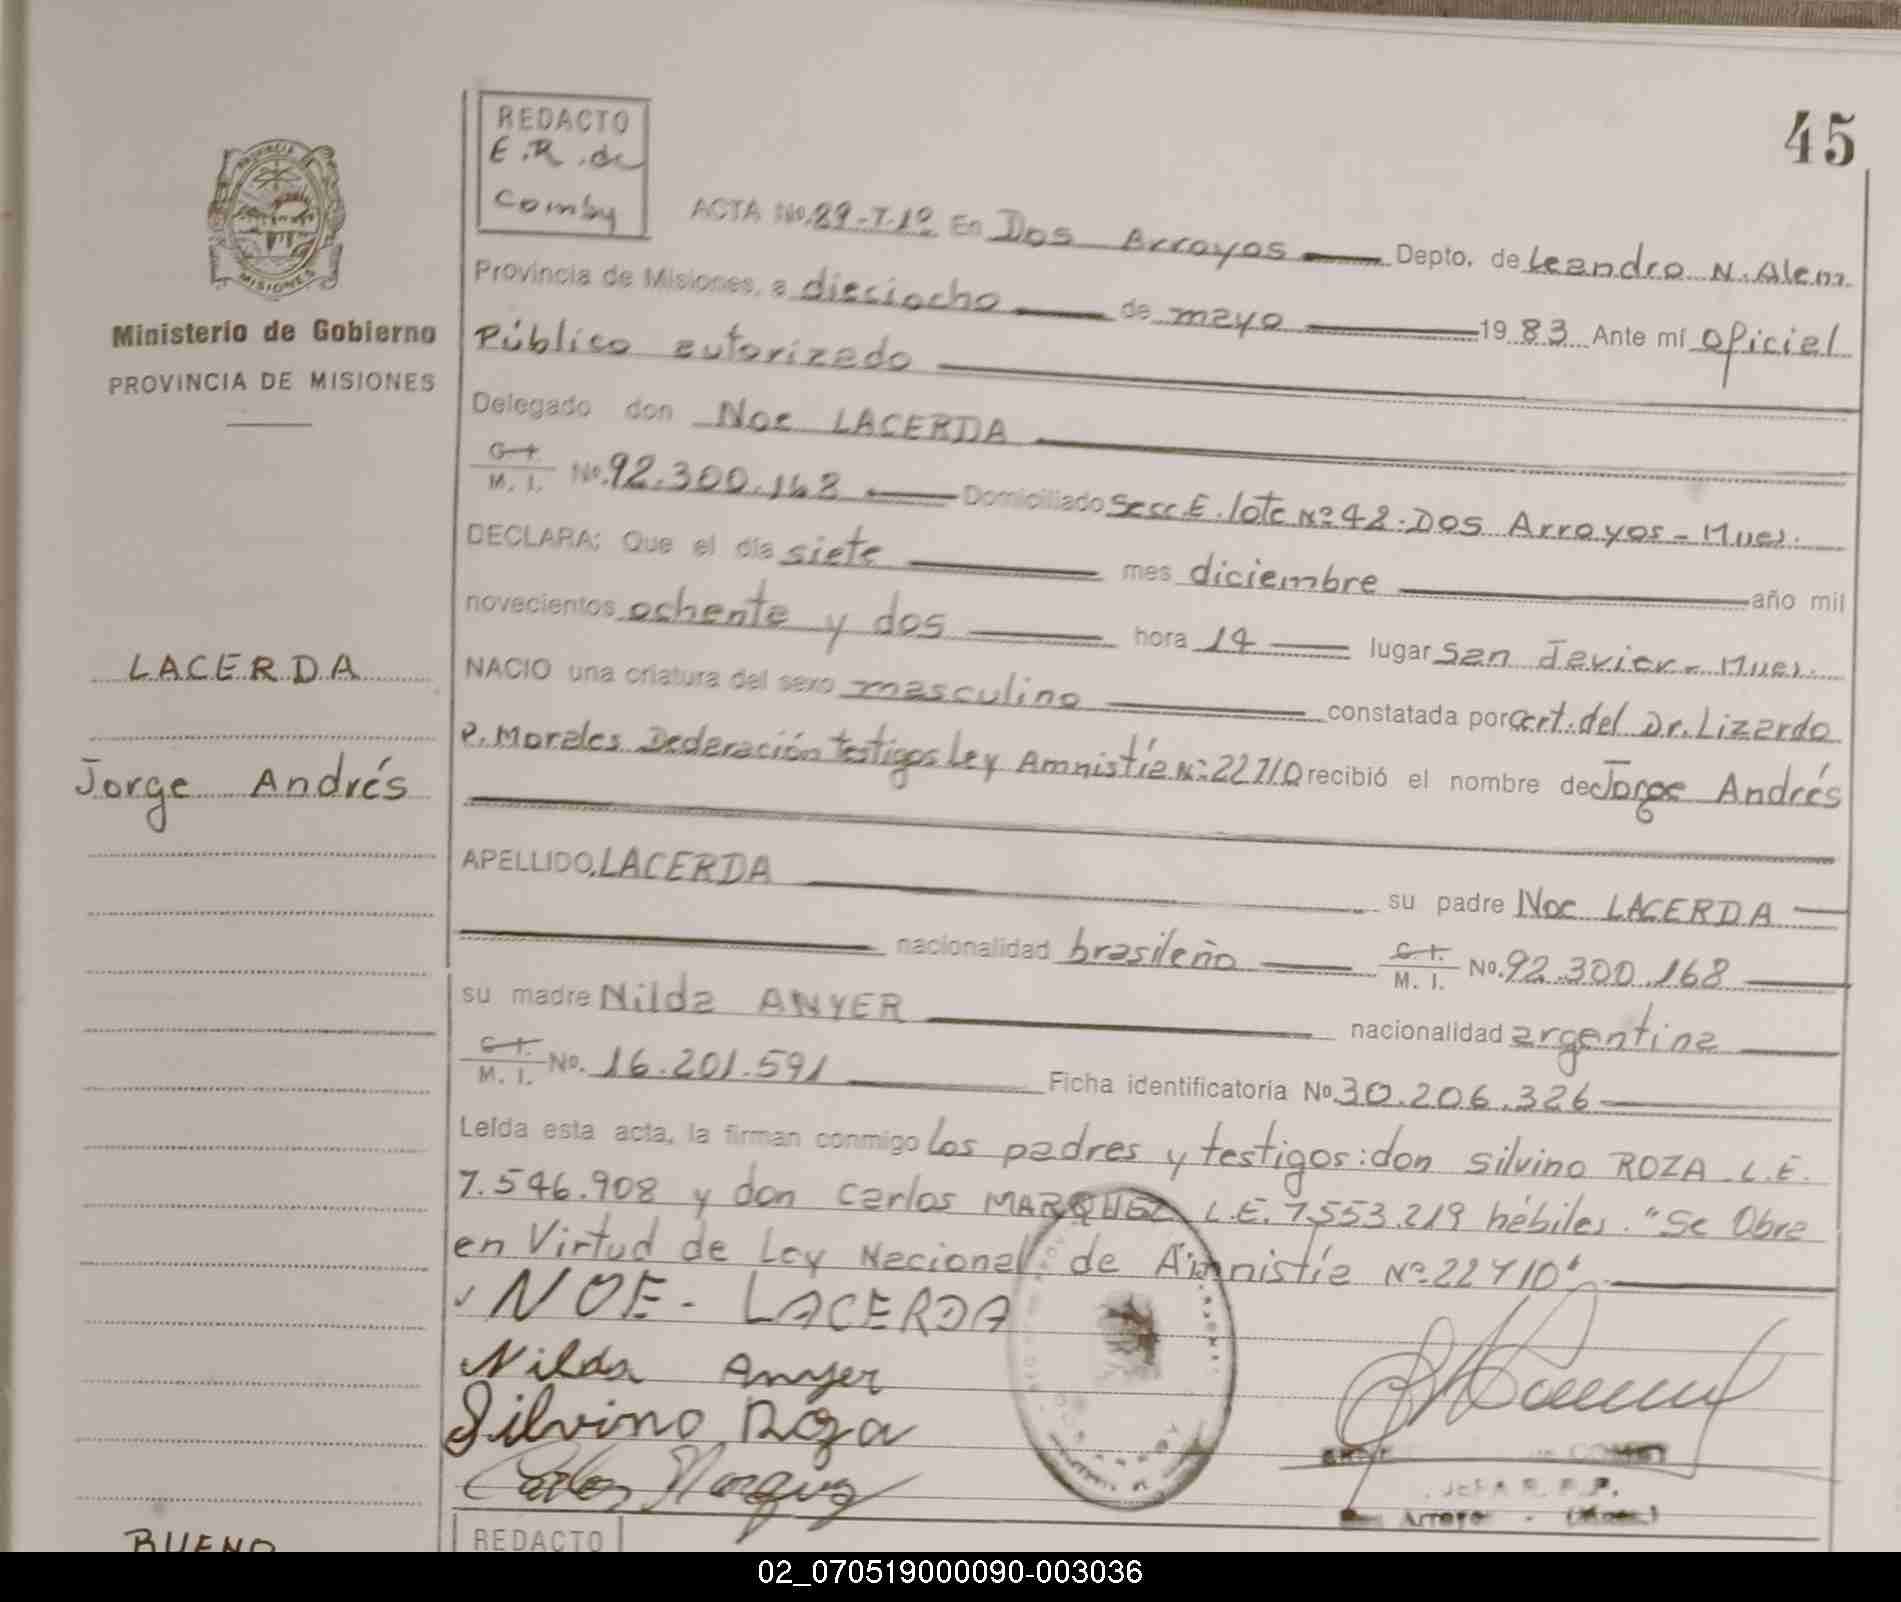 45
REDACTO
E.R. de
Comby
ACTA No. 89-T-1º En Dos Arroyos Depto. de Leandro N. Alem
Provincia de Misiones, a dieciocho de mayo 1983 Ante mí oficial
Público autorizado
Delegado don Noe LACERDA
C.I. M. I. No. 92.300.168 Domiciliado Secc E. lote Nº 42. Dos Arroyos - Mnes.
DECLARA: Que el día siete mes diciembre año mil
novecientos ochenta y dos hora 14 lugar San Javier - Mnes.
NACIO una criatura del sexo masculino constatada por Cert. del Dr. Lizardo
P. Morales Declaración testigos Ley Amnistía Nº 22710 recibió el nombre de Jorge Andrés
APELLIDO, LACERDA su padre Noe LACERDA
nacionalidad brasileño C.I. M. I. No. 92.300.168
su madre Nilda ANYER nacionalidad argentina
C.I. M. I. No. 16.201.591 Ficha identificatoria No. 30.206.326
Leída esta acta, la firman conmigo los padres y testigos: don Silvino ROZA L.E.
7.546.908 y don Carlos MARQUEZ L.E. 7.553.219 hábiles. "Se Obra
en Virtud de Ley Nacional de Amnistía Nº 22710"
NOE - LACERDA
Nilda Anyer
Silvino Roza
Carlos Marquez
JEFA R. P. P.
Arroyo - (Mnes.)
REDACTO
MISIONES
Ministerio de Gobierno
PROVINCIA DE MISIONES
LACERDA
Jorge Andrés
BUENO
02_070519000090-003036